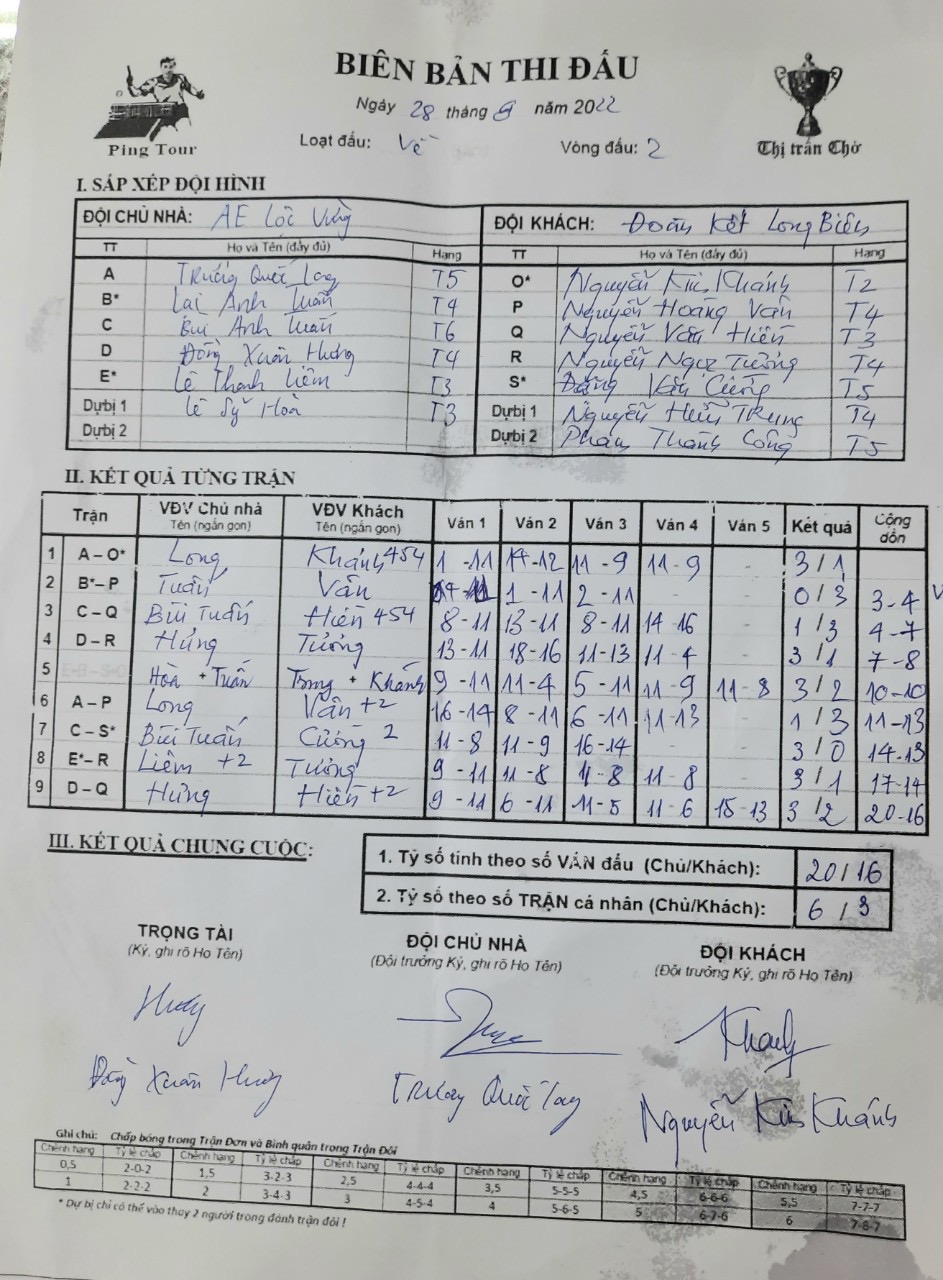 BIÊN BẢN THI ĐẤU
Ngày 28 tháng 8 năm 2022
Loạt đấu: Về Vòng đấu: 2
Ping Tour
Thị trấn Chờ
I. SẮP XẾP ĐỘI HÌNH
ĐỘI CHỦ NHÀ: AE Lộc Vừng ĐỘI KHÁCH: Đoàn Kết Long Biên
TT Họ và Tên (đầy đủ) Hạng TT Họ và Tên (đầy đủ) Hạng
A Trương Quốc Long T5 O* Nguyễn Kim Khánh T2
B* Lại Anh Tuấn T4 P Nguyễn Hoàng Vân T4
C Bùi Anh Tuấn T6 Q Nguyễn Văn Hiến T3
D Đồng Xuân Hưng T4 R Nguyễn Ngọc Tưởng T4
E* Lê Thanh Liêm T3 S* Đặng Văn Cường T5
Dự bị 1 Lê Sỹ Hoà T3 Dự bị 1 Nguyễn Hữu Trung T4
Dự bị 2 Dự bị 2 Phan Thành Công T5
II. KẾT QUẢ TỪNG TRẬN
Trận VĐV Chủ nhà Tên (ngắn gọn) VĐV Khách Tên (ngắn gọn) Ván 1 Ván 2 Ván 3 Ván 4 Ván 5 Kết quả Cộng dồn
1 A – O* Long Khánh 454 1 - 11 14 - 12 11 - 9 11 - 9 - 3 / 1
2 B* – P Tuấn Vân 1 - 11 2 - 11 - - 0 / 3 3 - 4
3 C – Q Bùi Tuấn Hiến 454 8 - 11 13 - 11 8 - 11 14 - 16 - 1 / 3 4 - 7
4 D – R Hưng Tưởng 13 - 11 18 - 16 11 - 13 11 - 4 - 3 / 1 7 - 8
5 Hòa + Tuấn Trung + Khánh 9 - 11 11 - 4 5 - 11 11 - 9 11 - 8 3 / 2 10 - 10
6 A – P Long Vân +2 16 - 14 8 - 11 6 - 11 11 - 13 - 1 / 3 11 - 13
7 C – S* Bùi Tuấn Cường 2 11 - 8 11 - 9 16 - 14 - - 3 / 0 14 - 13
8 E* – R Liêm +2 Tưởng 9 - 11 11 - 8 11 - 8 11 - 8 - 3 / 1 17 - 14
9 D – Q Hưng Hiến +2 9 - 11 6 - 11 11 - 5 11 - 6 15 - 13 3 / 2 20 - 16
III. KẾT QUẢ CHUNG CUỘC:
1. Tỷ số tính theo số VÁN đấu (Chủ/Khách): 20 / 16
2. Tỷ số theo số TRẬN cá nhân (Chủ/Khách): 6 / 3
TRỌNG TÀI ĐỘI CHỦ NHÀ ĐỘI KHÁCH
(Ký, ghi rõ Họ Tên) (Đội trưởng Ký, ghi rõ Họ Tên) (Đội trưởng Ký, ghi rõ Họ Tên)
Khanh
Đồng Xuân Hưng Trương Quốc Long Nguyễn Kim Khánh
Ghi chú: Chấp bóng trong Trận Đơn và Bình quân trong Trận Đôi
Chênh hạng Tỷ lệ chấp Chênh hạng Tỷ lệ chấp Chênh hạng Tỷ lệ chấp Chênh hạng Tỷ lệ chấp Chênh hạng Tỷ lệ chấp Chênh hạng Tỷ lệ chấp
0,5 2-0-2 1,5 3-2-3 2,5 4-4-4 3,5 5-5-5 4,5 6-6-6 5,5 7-7-7
1 2-2-2 2 3-4-3 3 4-5-4 4 5-6-5 5 6-7-6 6 7-8-7
* Dự bị chỉ có thể vào thay 2 người trong đánh trận đôi !